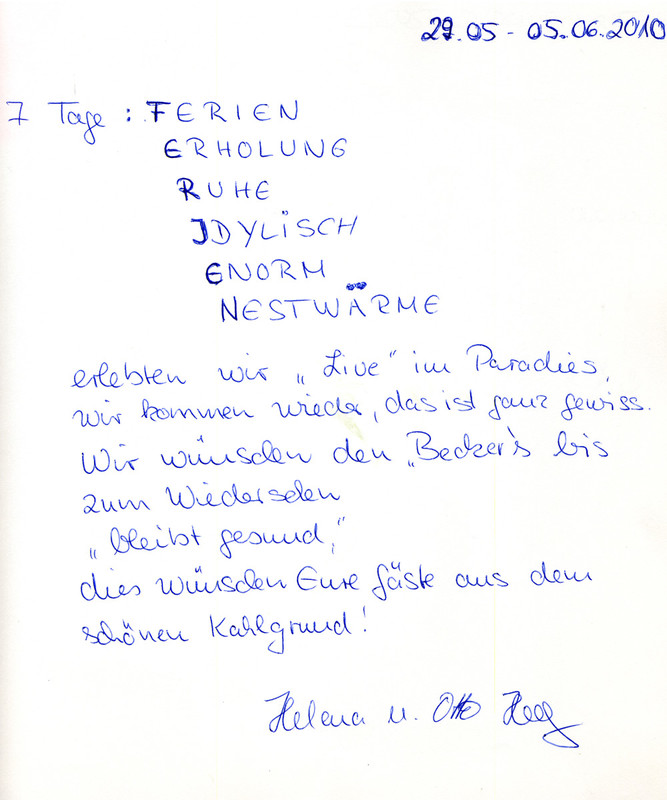 29.05 - 05.06.2010
7 Tage: FERIEN
ERHOLUNG
RUHE
IDYLISCH
ENORM
NESTWÄRME
erlebten wir „Live“ im Paradies,
wir kommen wieder, das ist ganz gewiss.
Wir wünschen den „Becker's bis
zum Wiedersehen
„bleibt gesund,“
dies wünschen Eure Gäste aus dem
schönen Kahlgrund!
Helena u. Otto